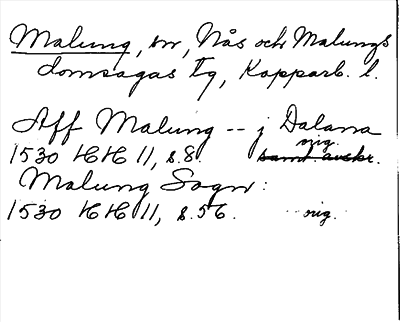 Malung, sn, Nås och Malungs
domsagas tg, Kopparb. l.
Aff Malung -- j Dalarna
1530 HH 11, s. 8. orig.
samt avskr.
Malung Sogn:
1530 HH 11, s. 56. orig.